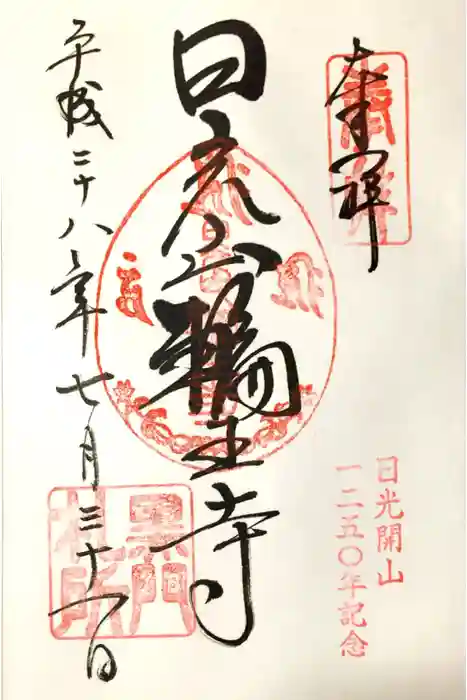 奉拝
日光山輪王寺
平成二十八年七月三十一日
日光開山
一二五〇年記念
黒門
札所